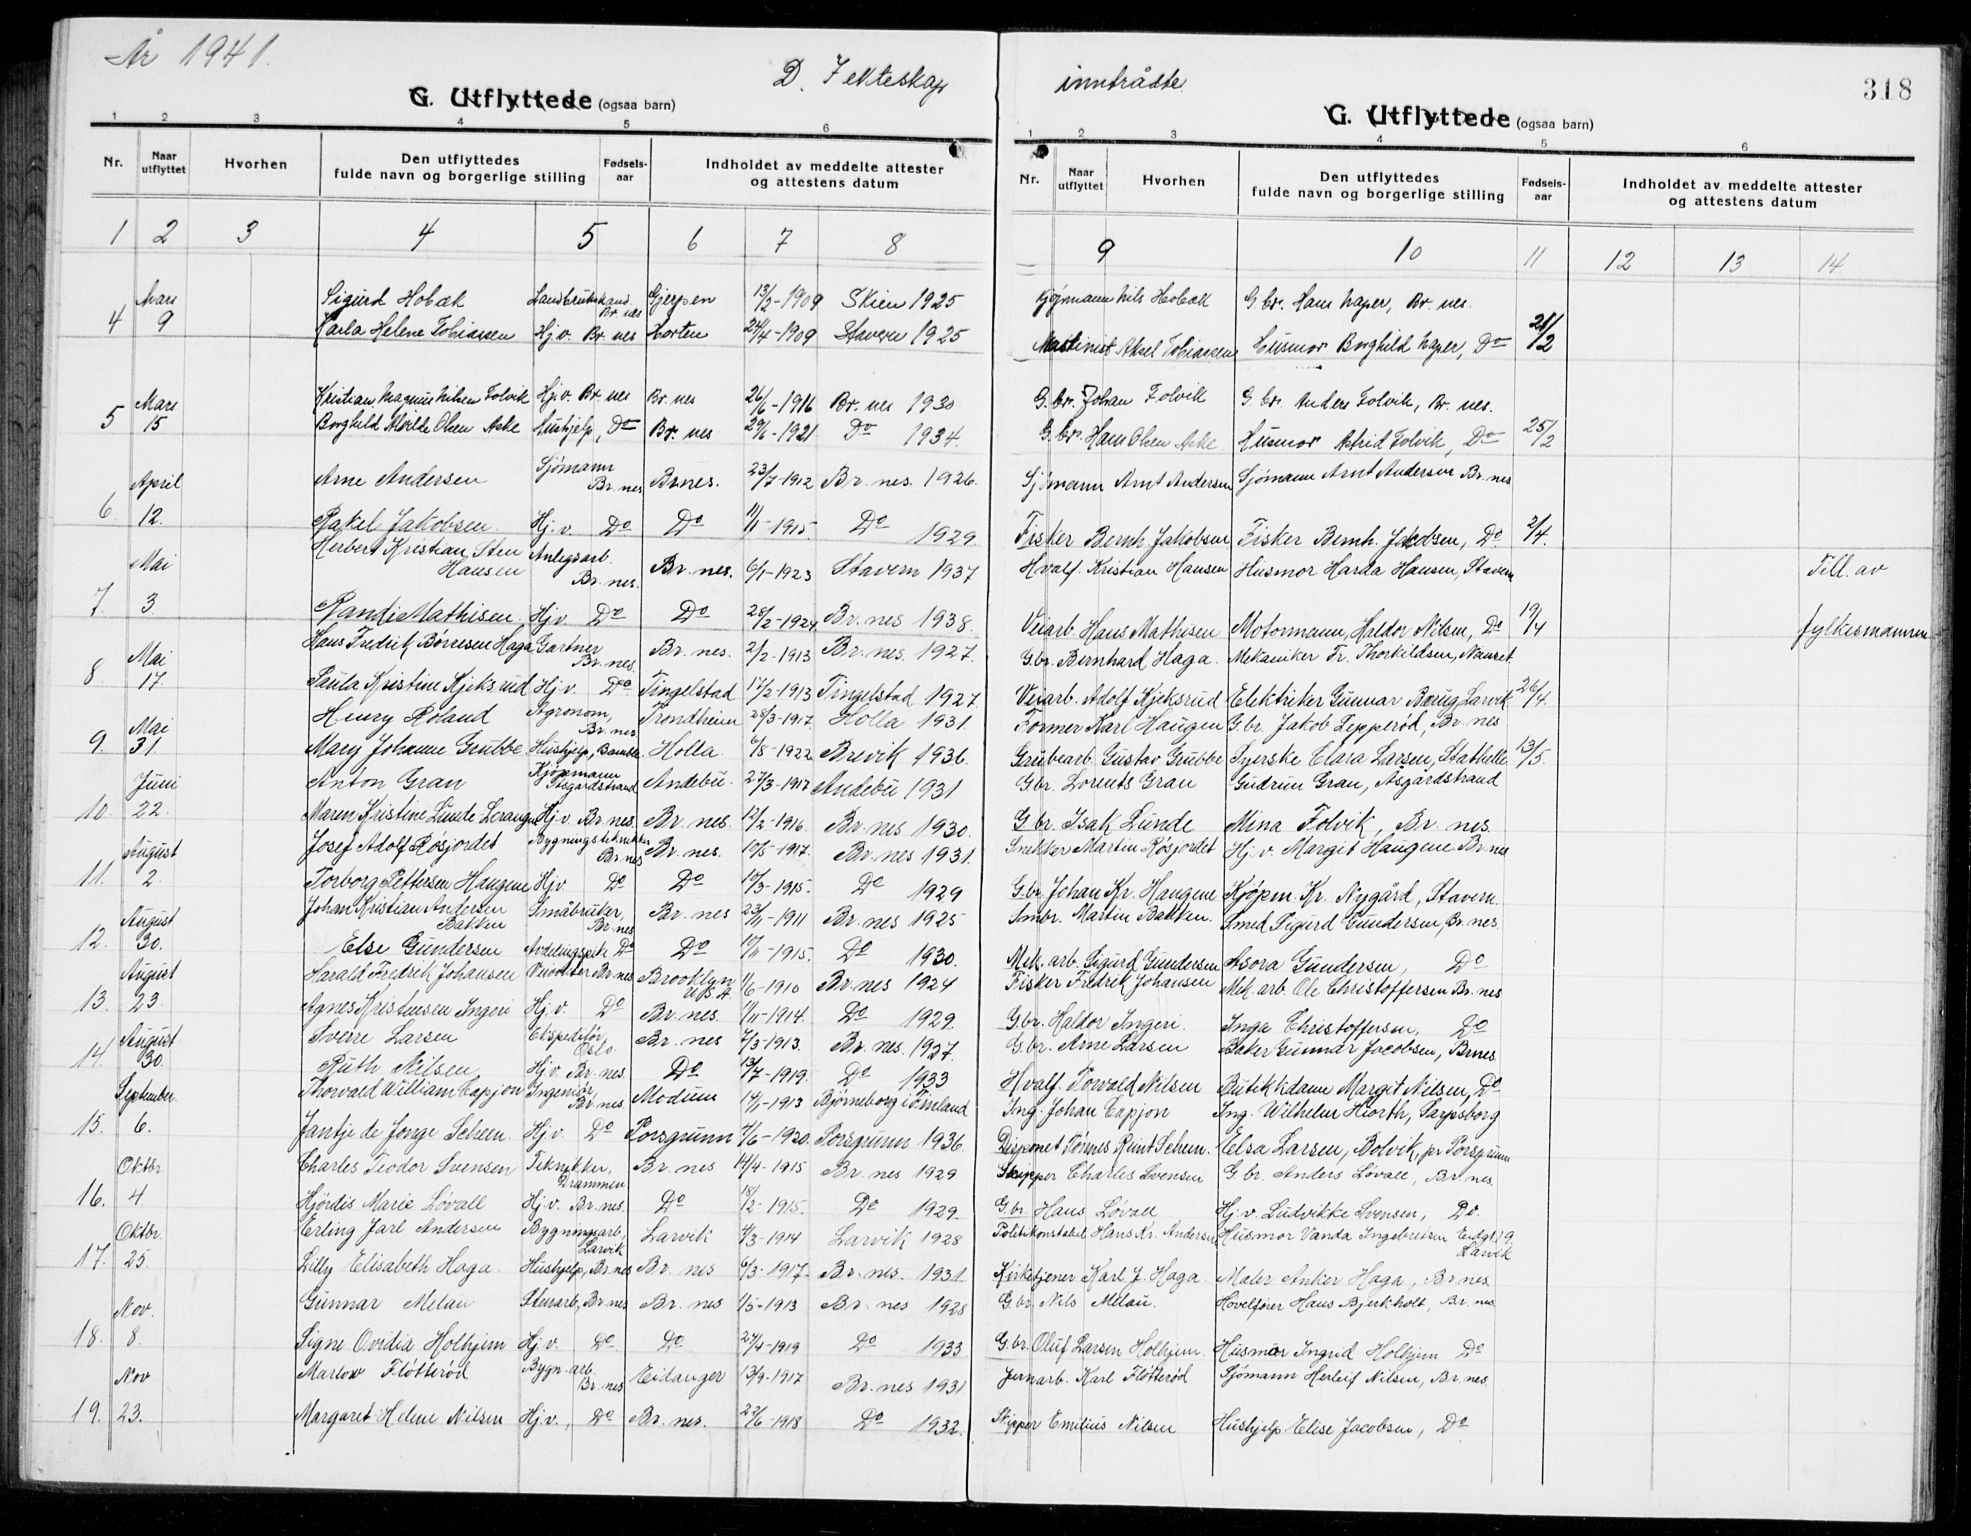 År 1941.
D. I ekteskap inntrådte
318
G. Utflyttede (ogsaa barn)
G. Utflyttede (ogsaa barn)
1 2 3 4 5 6
1 2 3 4 5 6
Nr. Naar utflyttet Hvorhen Den utflyttedes fulde navn og borgerlige stilling Fødsels-aar Indholdet av meddelte attester og attestens datum
Nr. Naar utflyttet Hvorhen Den utflyttedes fulde navn og borgerlige stilling Fødsels-aar Indholdet av meddelte attester og attestens datum
1 2 3 4 5 6 7 8 9 10 11 12 13 14
Mars Sigurd Hobæk Br. nes Gjerpen 13/2-1909 Skien 1925 Nils Hobæk G.br. Hans Naper, Br. nes.
4 9 Karla Helene Tobiassen Hj.v. Br. nes Horten 24/4-1909 Stavern 1925 Maskinist Aksel Tobiassen Husmor Borghild Naper, Do 21/2
Mars Kristian Magnus Nilsen Folvik Hj.v. Br. nes Br. nes 26/6-1916 Br. nes 1930 G.br. Johan Folvik G.br. Anders Folvik, Br. nes.
5 15 Borghild Alvilde Olsen Aske Hushjelp, Do Br. nes 29/6-1921 Do 1934. G.br. Hans Olsen Aske Husmor Astrid Folvik, Do 25/2
April Arne Andersen Sjømann Br. nes Br.nes. 23/7-1912 Br. nes. 1926. Sjømann Arnt Andersen Sjømann Arnt Andersen Br. nes
6. 12. Rakel Jakobsen. Hj.v. Do Do 11/1-1915 Do 1929. Fisker Bernh. Jakobsen Fisker Bernh. Jakobsen, Do. 2/4.
Mai Herbert Kristian Sten Hansen Anlegsarb. Br. nes. Br. nes. 6/1-1923 Stavern 1937 Hvalf. Kristian Hansen Husmor Harda Hansen, Stavern Till. av
7. 3 Randi Mathisen. Hj.v. Do Do. 28/2-1924. Br. nes 1938. Veiarb. Hans Mathisen Motormann, Haldor Nilsen, Do 19/4 fylkesmannen
Mai Hans Fredrik Børresen Haga Gartner Br. nes. Br. nes. 2/2-1913 Br. nes. 1927. G.br. Bernhard Haga. Mekaniker Fr. Thorkildsen, Nanset.
8 17. Paula Kristine Kjeksrud Hj.v. Do. Tingelstad 17/2-1913 Tingelstad 1927. Veiarb. Adolf Kjeksrud Elektriker Gunnar Larvik 26/4.
Mai Henry Roland Agronom, Br. nes Trondheim 28/3-1917. Holla 1931. Former Karl Haugen G.br. Jakob Lepperød, Br. nes
9. 31. Mary Johanne Grubbe Hushjelp, Bamble Holla 6/8-1922 Brevik 1936. Grubearb. Gustav Grubbe Syerske Clara Larsen, Stathelle 13/5.
Juni Anton Gran Kjøpmann Åsgårdstrand Andebu. 27/3-1917 Andebu 1931 G.br. Lorents Gran Gudrun Gran, Åsgårdstrand
10. 22. Maren Kristine Lunde Hj.v. Br. nes. Br. nes. 12/2-1916. Br. nes 1930. G.br. Isak Lunde Mina Folvik, Br. nes.
August Josef Adolf Røsjordet Bygningstekniker Br. nes Br. nes. 10/5-1917. Br. nes 1931. Snekker Martin Røsjordet Hj.v. Margit Haugene Br. nes
11. 2. Torborg Pettersen Haugene Hj.v. Do Do 17/3-1915. Do 1929 G.br. Johan Kr. Haugene Kjøpm. Kr. Nygård, Stavern.
August Johan Kristian Andersen Bakken Småbruker, Br. nes Br. nes 23/11-1911 Br. nes 1925 Smbr. Martin Bakken. Smed Sigurd Gundersen, Br. nes.
12. 30. Else Gundersen Do Do 17/11-1915. Do 1930. Mek. arb. Sigurd Gundersen Asora Gundersen, Do
August Harald Fredrik Johansen Br. nes Brooklyn U.S.A 11/6-1910 Br. nes 1924 Fisker Fredrik Johansen Mek. arb. Ole Christoffersen Br. nes
13. 23. Agnes Kristensen Ingeri Hj.v. Do Br. nes. 11/11-1914. Do 1929. G.br. Haldor Ingeri. Inga Christoffersen, Do
August Sverre Larsen Ekspeditør, Oslo. Br. nes 7/3-1913. Br. nes. 1927. G.br. Arne Larsen Baker Gunnar Jacobsen, Br.nes
14. 30. Ruth Nilsen Hj.v. Br. nes. Do 13/7-1919. Do 1933 Hvalf. Torvald Nilsen Butikkdame Margit Nilsen, Do
September Thorvald William Capjon Ingeniør, Br. nes. Modum 14/1-1913 Bjørneborg i Finland Ing. Johan Capjon Ing. Wilhelm Hiorth, Sarpsborg
15. 6. Jantje de Jonge Scheen. Hj.v. Do Porsgrunn 7/6-1920. Porsgrunn 1936. Scheen. Elsa Larsen, Bolvik, pr Porsgrunn
Oktbr. Charles Teodor Svensen Tekniker, Drammen Br. nes 14/4-1915 Br. nes 1929 Skipper Charles Svensen G.br. Anders Løvall, Br. nes.
16. 4. Hjørdis Marie Løvall Hj.v. Br. nes. Do 18/2-1915. Do 1929. G.br. Hans Løvall Hj.v. Ludvikke Svensen, Do.
Oktbr. Erling Jarl Andersen Bygningsarb, Larvik Larvik 4/3-1914 Larvik 1928 Politikonstabel Hans Kr. Andersen Husmor Vanda Ingebretsen Larvik
17. 25. Lilly Elisabeth Haga. Hushjelp, Br. nes Br. nes 6/3-1917. Br. nes. 1931. Kirketjener Karl J. Haga Maler Anker Haga, Br. nes.
Nov. Gunnar Melau Stenarb, Br. nes Br. nes 1/5-1913 Br. nes 1928 G.br. Nils Melau. Høvelfører Hans Bjerkholt, Br. nes.
18. 8. Signe Ovidia Holhjem Hj.v. Do. Do. 27/4-1919 Do 1933 G.br. Oluf Larsen Holhjem. Husmor Ingrid Holhjem Do
Nov Marlow Fløtterød Bygn. arb. Br. nes Eidanger 13/9-1917 Br. nes 1931 Jernarb. Karl Fløtterød Sjømann Herleif Nilsen, Br. nes.
19. 23. Margaret Helene Nilsen Hj.v., Do Br. nes. 22/6-1918 Do 1932. Skipper Emilius Nilsen Hushjelp Elise Jacobsen, Do